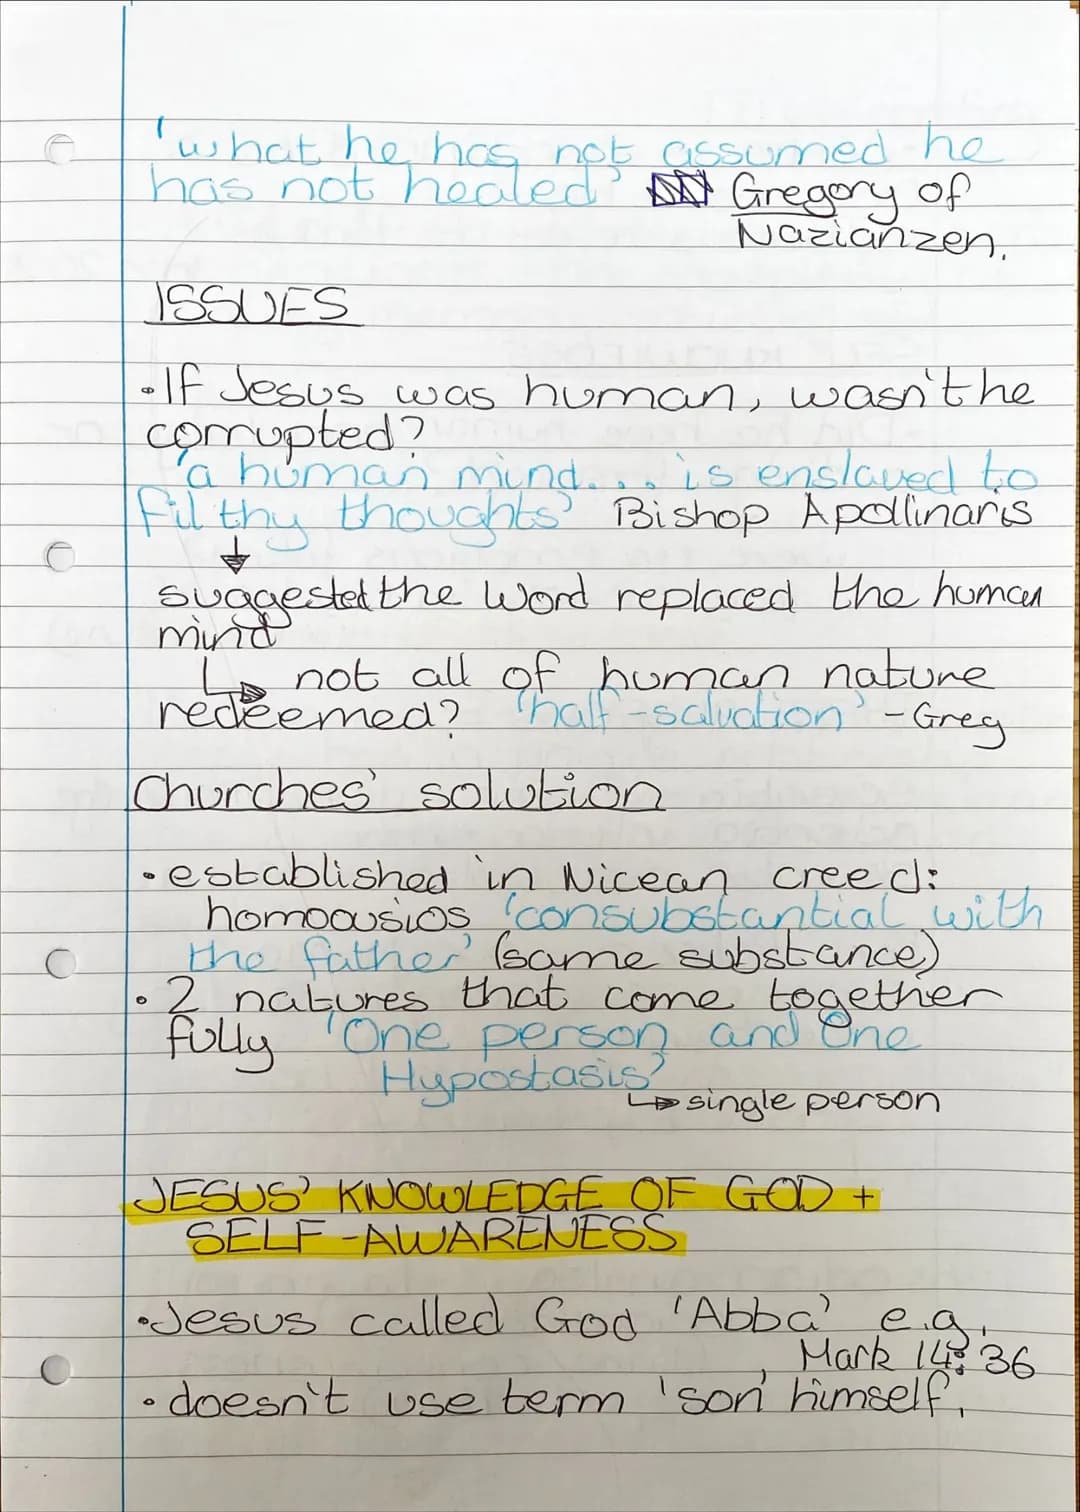 'what he has not assumed he
has not healed' Gregory of
Nazianzen.
ISSUES
• If Jesus was human, wasn't he
corrupted?
'a human mind... is enslaved to
filthy thoughts' Bishop Apollinaris
↓
suggested the Word replaced the human
mind
↳ not all of human nature
redeemed? 'half-salvation' - Greg
Churches' solution
• established in Nicean creed:
homoousios 'consubstantial with
the father' (same substance)
• 2 natures that come together
fully 'One person and One
Hypostasis'
↳ single person
JESUS' KNOWLEDGE OF GOD +
SELF-AWARENESS
• Jesus called God 'Abba' e.g.
Mark 14:36
• doesn't use term 'son' himself.